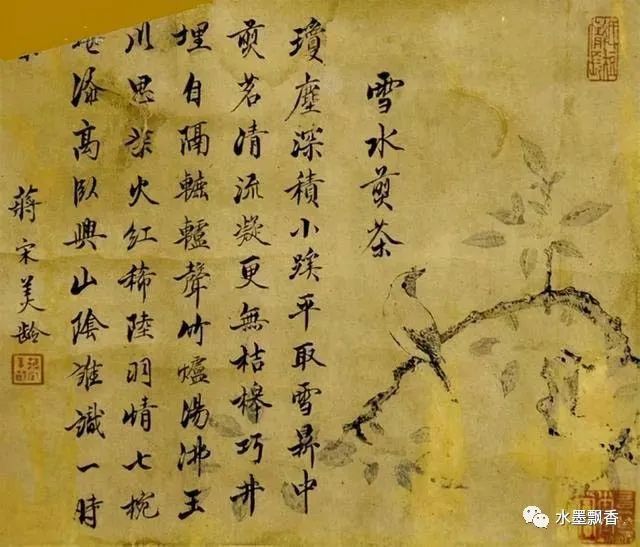 雪水煎茶
瓊塵深積小蹊平取雪鼎中
煎茗清流凝更無桔槔巧井
埋自隔轆轤聲竹爐湯沸玉
川思火紅稀陸羽情七椀
添高臥興山陰誰識一時
蔣宋美齡
水墨飘香